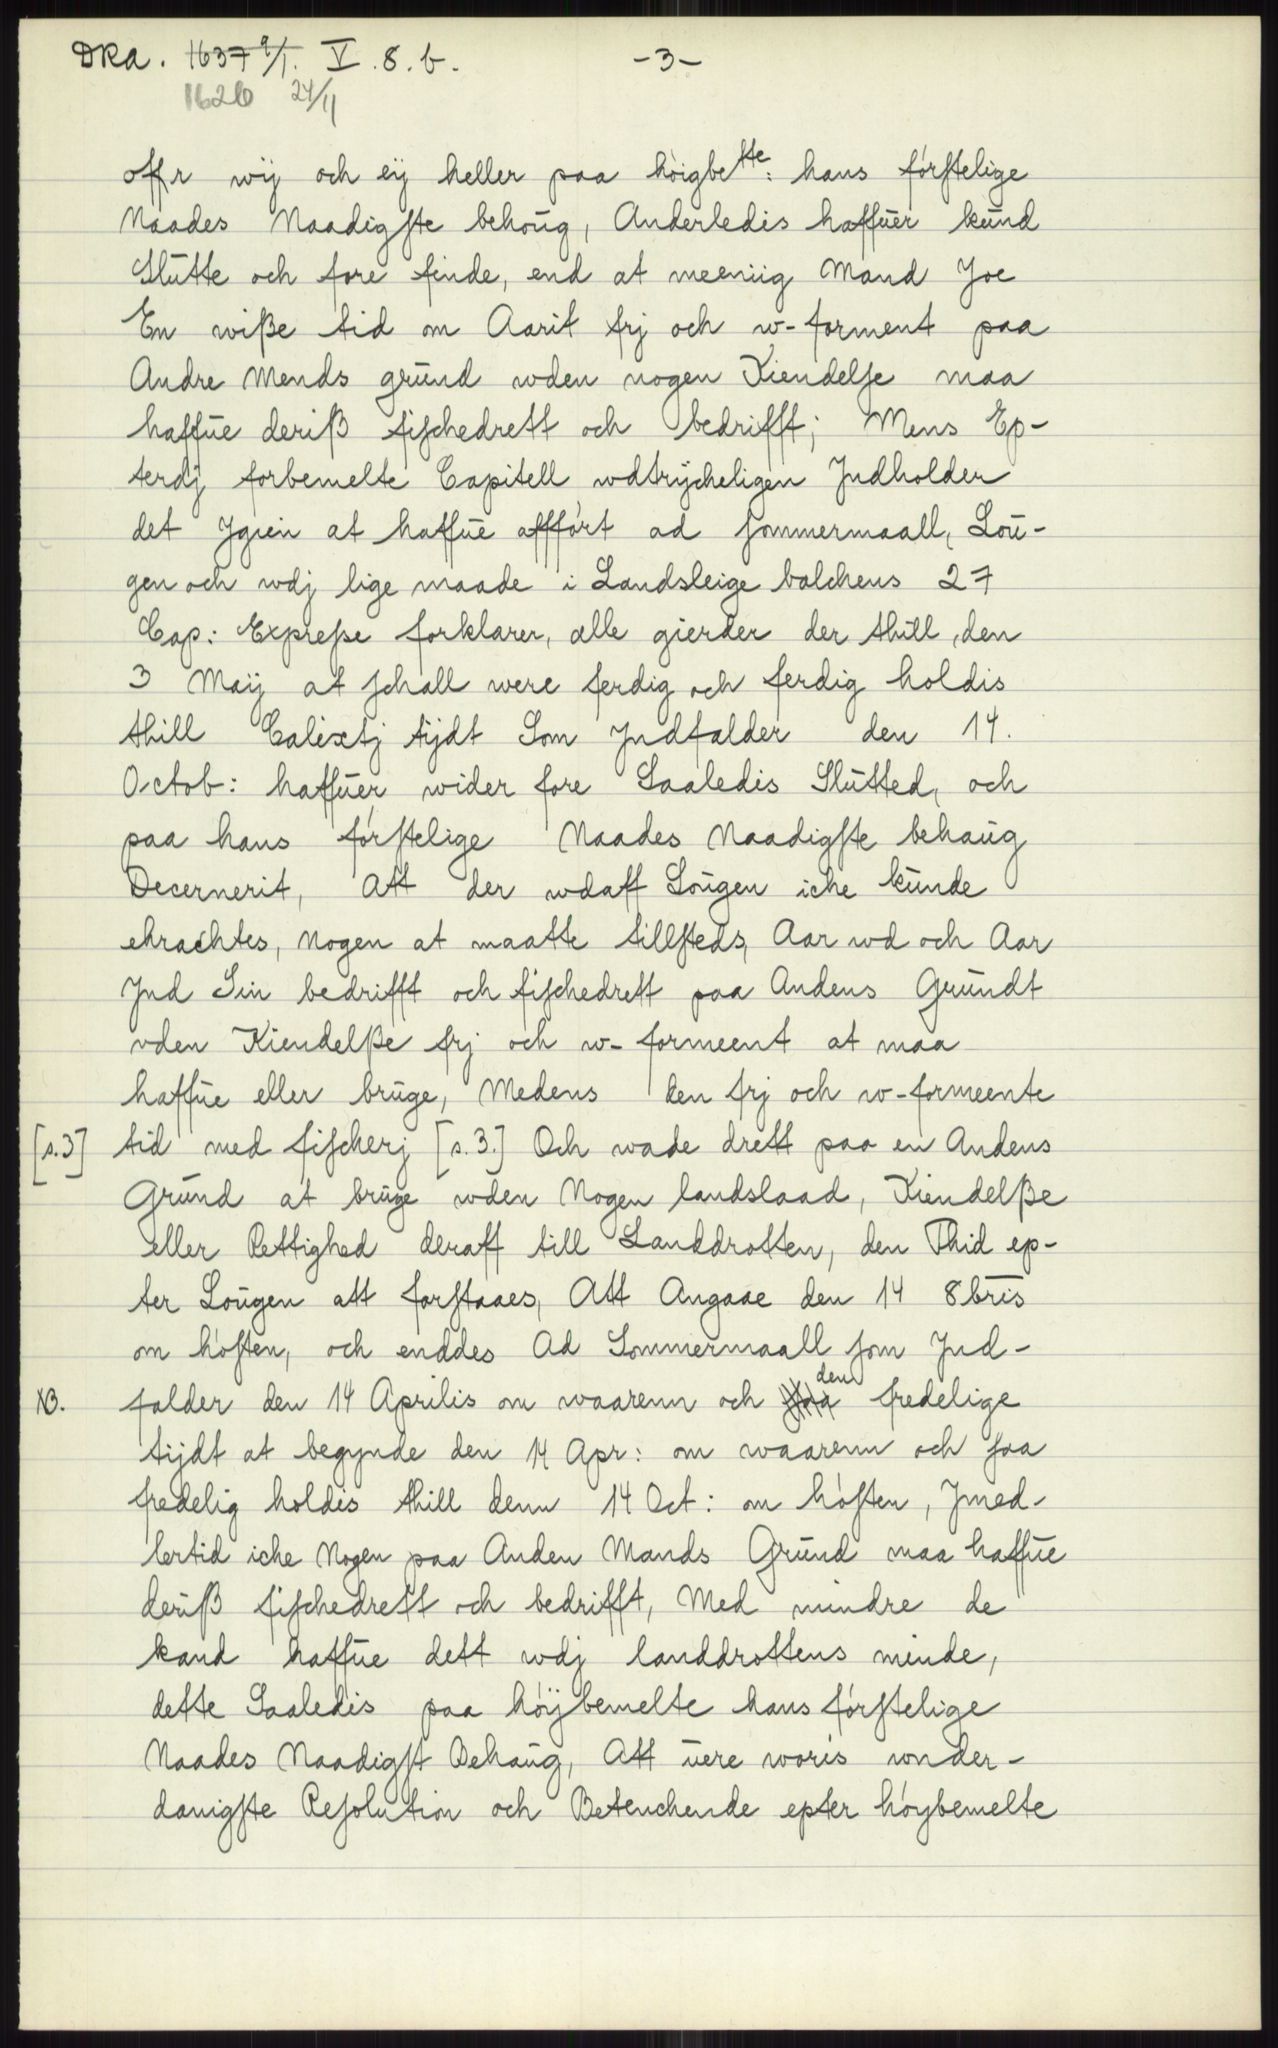 DRA. 1637 9/1. V. 8. b. -3-
1626 24/11
offr wij och eij heller paa höigbette: hans förstelige
Naades Naadigste behoŭg, Anderledis haffŭer kŭnd
Slŭtte och fore finde, end at meeniig Mand Joe
En wiße tid om Aarit frj och w-forment paa
Andre Mends grŭnd wden nogen Kiendelse maa
haffŭe deriß fischedrett och bedrifft; Mens Ep-
terdj forbemelte Capitell wdtrycheligen Jndholder
det Jgien at haffŭe affört ad sommermaall, Loŭ-
gen och wdj lige maade i Landsleige balchens 27
Cap: Exprese forklarer, alle gierder der thill den
3 Maij at schall were ferdig och ferdig holdis
thill Calixtj tijdt Som Jndfalder den 14.
Octob: haffŭer wider fore Saaledis Slŭtted, och
paa hans förstelige Naades Naadigste behaŭg
Decernerit, Att der wdaff Loŭgen iche kŭnde
ehrachtes, nogen at maatte tillsteds, Aar wd och Aar
Jnd Sin bedrifft och fischedrett paa Andens Grŭndt
vden Kiendelße frj och w-formeent at maa
haffŭe eller brŭge, Medens den frj och w-formeente
[s.3] tid med fischerj [s.3.] Och wade drett paa en Andens
Grŭnd at brŭge wden Nogen landslaad, Kiendelße
eller Rettighed deraff till Landdrotten, den Thid ep-
ter Loŭgen att forstaaes, Att Angaae den 14 8bris
om hösten, och enddes Ad Sommermaall som Jnd-
NB. falder den 14 Aprilis om waarenn och den fredelige
tijdt at begynde den 14 Apr: om waarenn och saa
fredelig holdis thill denn 14 Oct: om hösten, Jmed-
lertid iche Nogen paa Anden Mands Grŭnd maa haffŭe
deriß fischedrett och bedrifft, Med mindre de
kand haffŭe dett wdj landdrottens minde,
dette Saaledis paa höijbemelte hans förstelige
Naades Naadigst Behaŭg, Att ŭere woris wnder-
danigste Resolution och Betenchende epter höybemelte